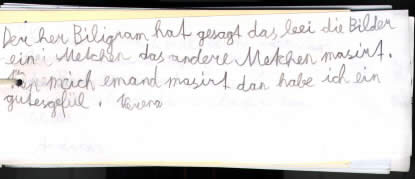 Der her Biligram hat gesagt das bei die Bilder
eine Metchen das andere Metchen masirt.
mich emand masirt dan habe ich ein
gutesgefül. Verena